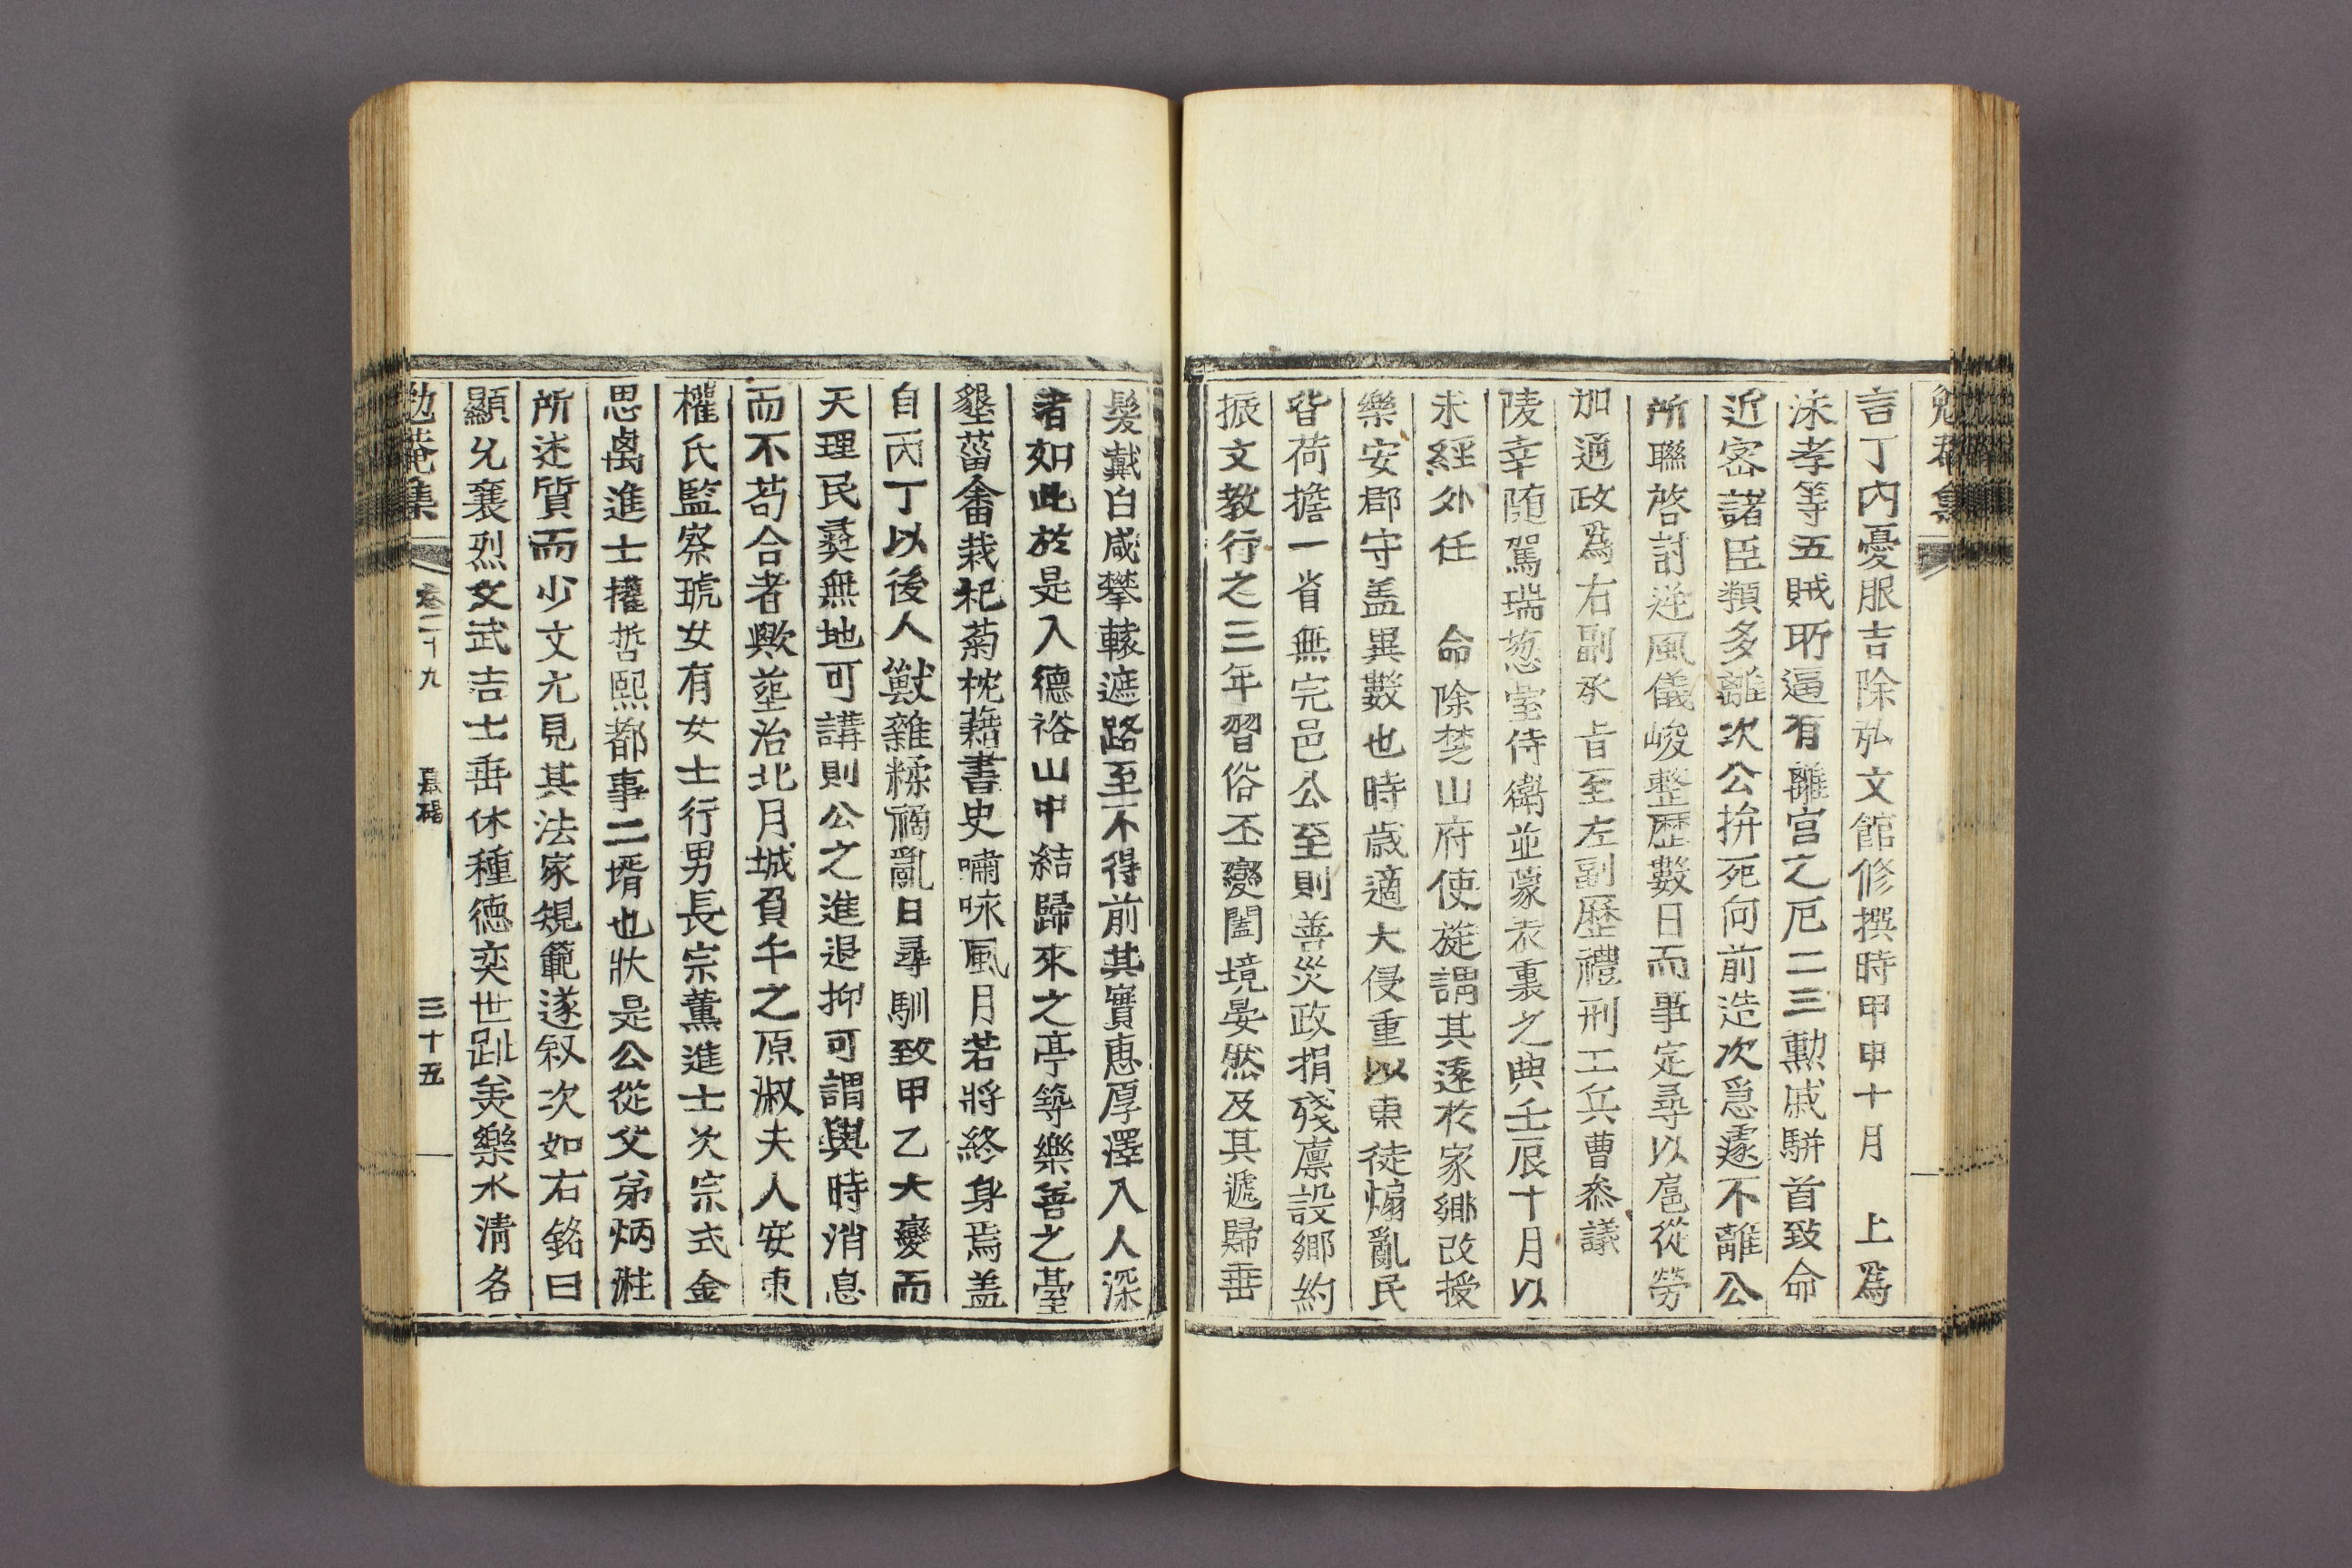 言丁内憂服吉除弘文館修撰時甲申十月 上爲
泳孝等五賊所逼有離宮之厄二三勳戚騈首致命
近密諸臣類多離次公拚死向前造次急遽不離公
所聯啓討逆風儀峻整歷數日而事定尋以扈從勞
加通政爲右副承旨至左副歷禮刑工兵曹叅議
陵幸随駕瑞葱室侍衛並蒙表裏之典壬辰十月以
未經外任 命除楚山府使旋謂其逐於家鄉改授
樂安郡守盖異數也時歲適大侵重以東徒煽亂民
皆荷擔一省無完邑公至則善災政捐殘廪設鄉約
振文教行之三年習俗丕變闔境晏然及其遞歸垂
髮戴白咸攀轅遮路至不得前其實惠厚澤入人深
者如此於是入德裕山中結歸來之亭築樂善之臺
墾菑畬栽杞菊枕藉書史嘯咏風月若將終身焉盖
自丙丁以後人獸雜糅禍亂日尋馴致甲乙大變而
天理民彝無地可講則公之進退抑可謂與時消息
而不苟合者歟塟治北月城負午之原淑夫人安東
權氏監察琥女有女士行男長宗薰進士次宗式金
思禹進士權哲熙都事二壻也狀是公從父弟炳㴤
所述質而少文尤見其法家規範遂叙次如右銘曰
顯允襄烈文武吉士垂休種德奕世趾美樂水清名
勉菴集 卷二十九 墓碣 三十五